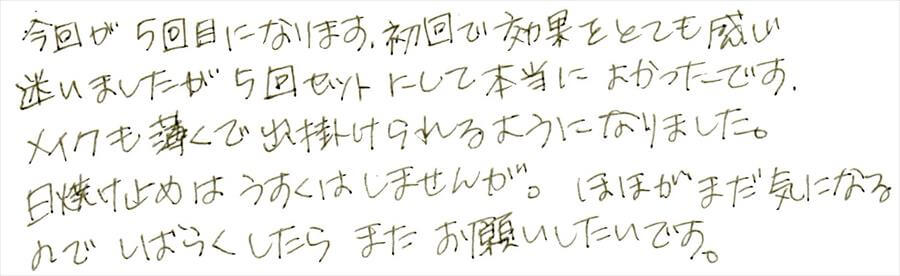 今回が5回目になります。初回で効果をとても感じ
迷いましたが5回セットにして本当によかったです。
メイクも薄くで出掛けられるようになりました。
日焼け止めはうすくはしませんが。ほほがまだ気になる
んでしばらくしたらまたお願いしたいです。